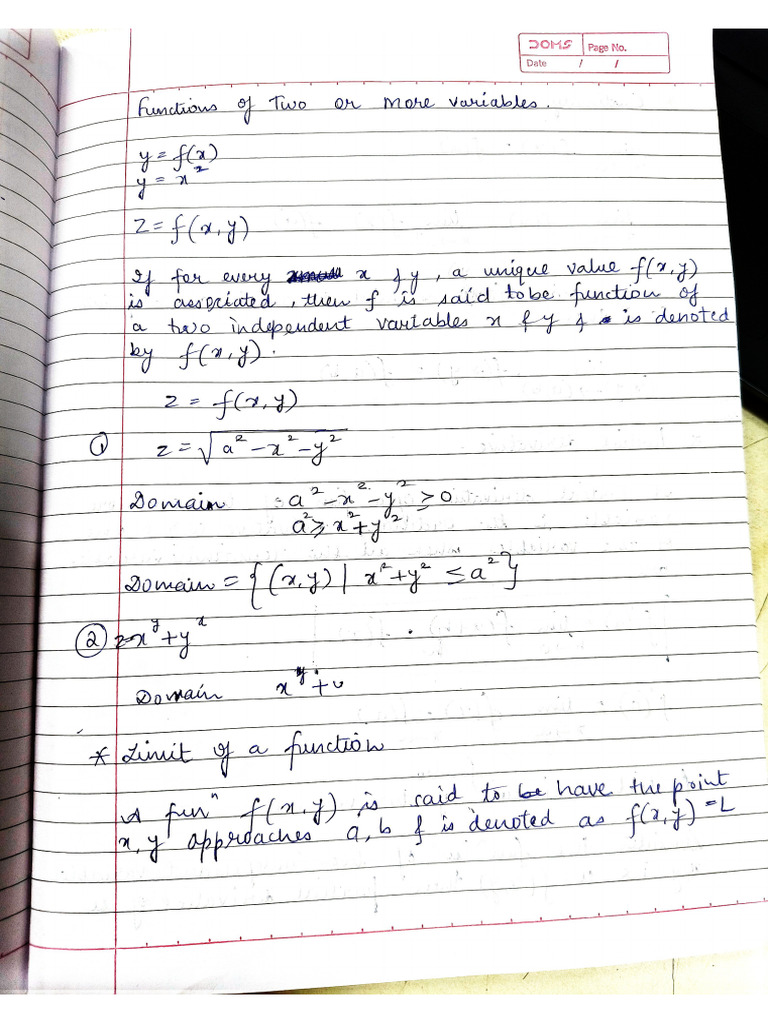 DOMS Page No.
Date / /
Functions of Two or more variables.
y = f(x)
y = x²
z = f(x,y)
If for every x & y, a unique value f(x,y)
is associated, then f is said to be function of
a two independent variables x & y & is denoted
by f(x,y).
z = f(x,y)
① z = √a²-x²-y²
Domain = a²-x²-y² ≥ 0
a² ≥ x²+y²
Domain = {(x,y) | x²+y² ≤ a²}
② z=x^y+y^x
Domain x^y+
* Limit of a function
A funⁿ f(x,y) is said to have the point
x,y approaches a,b & is denoted as f(x,y)=L